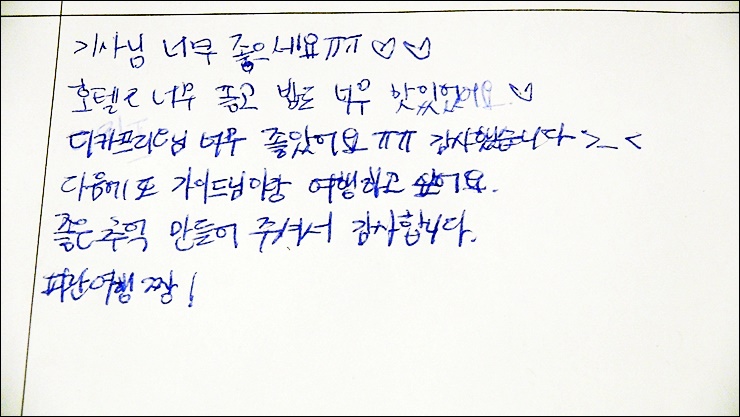 기사님 너무 좋으세요ㅠㅠ ♡♡
호텔도 너무 좋고 밥도 너무 맛있었어요 ♡
디카프리오님 너무 좋았어요ㅠㅠ 감사했습니다 >_<
다음에 또 가이드님이랑 여행하고 싶어요.
좋은 추억 만들어 주셔서 감사합니다.
파란여행 짱!